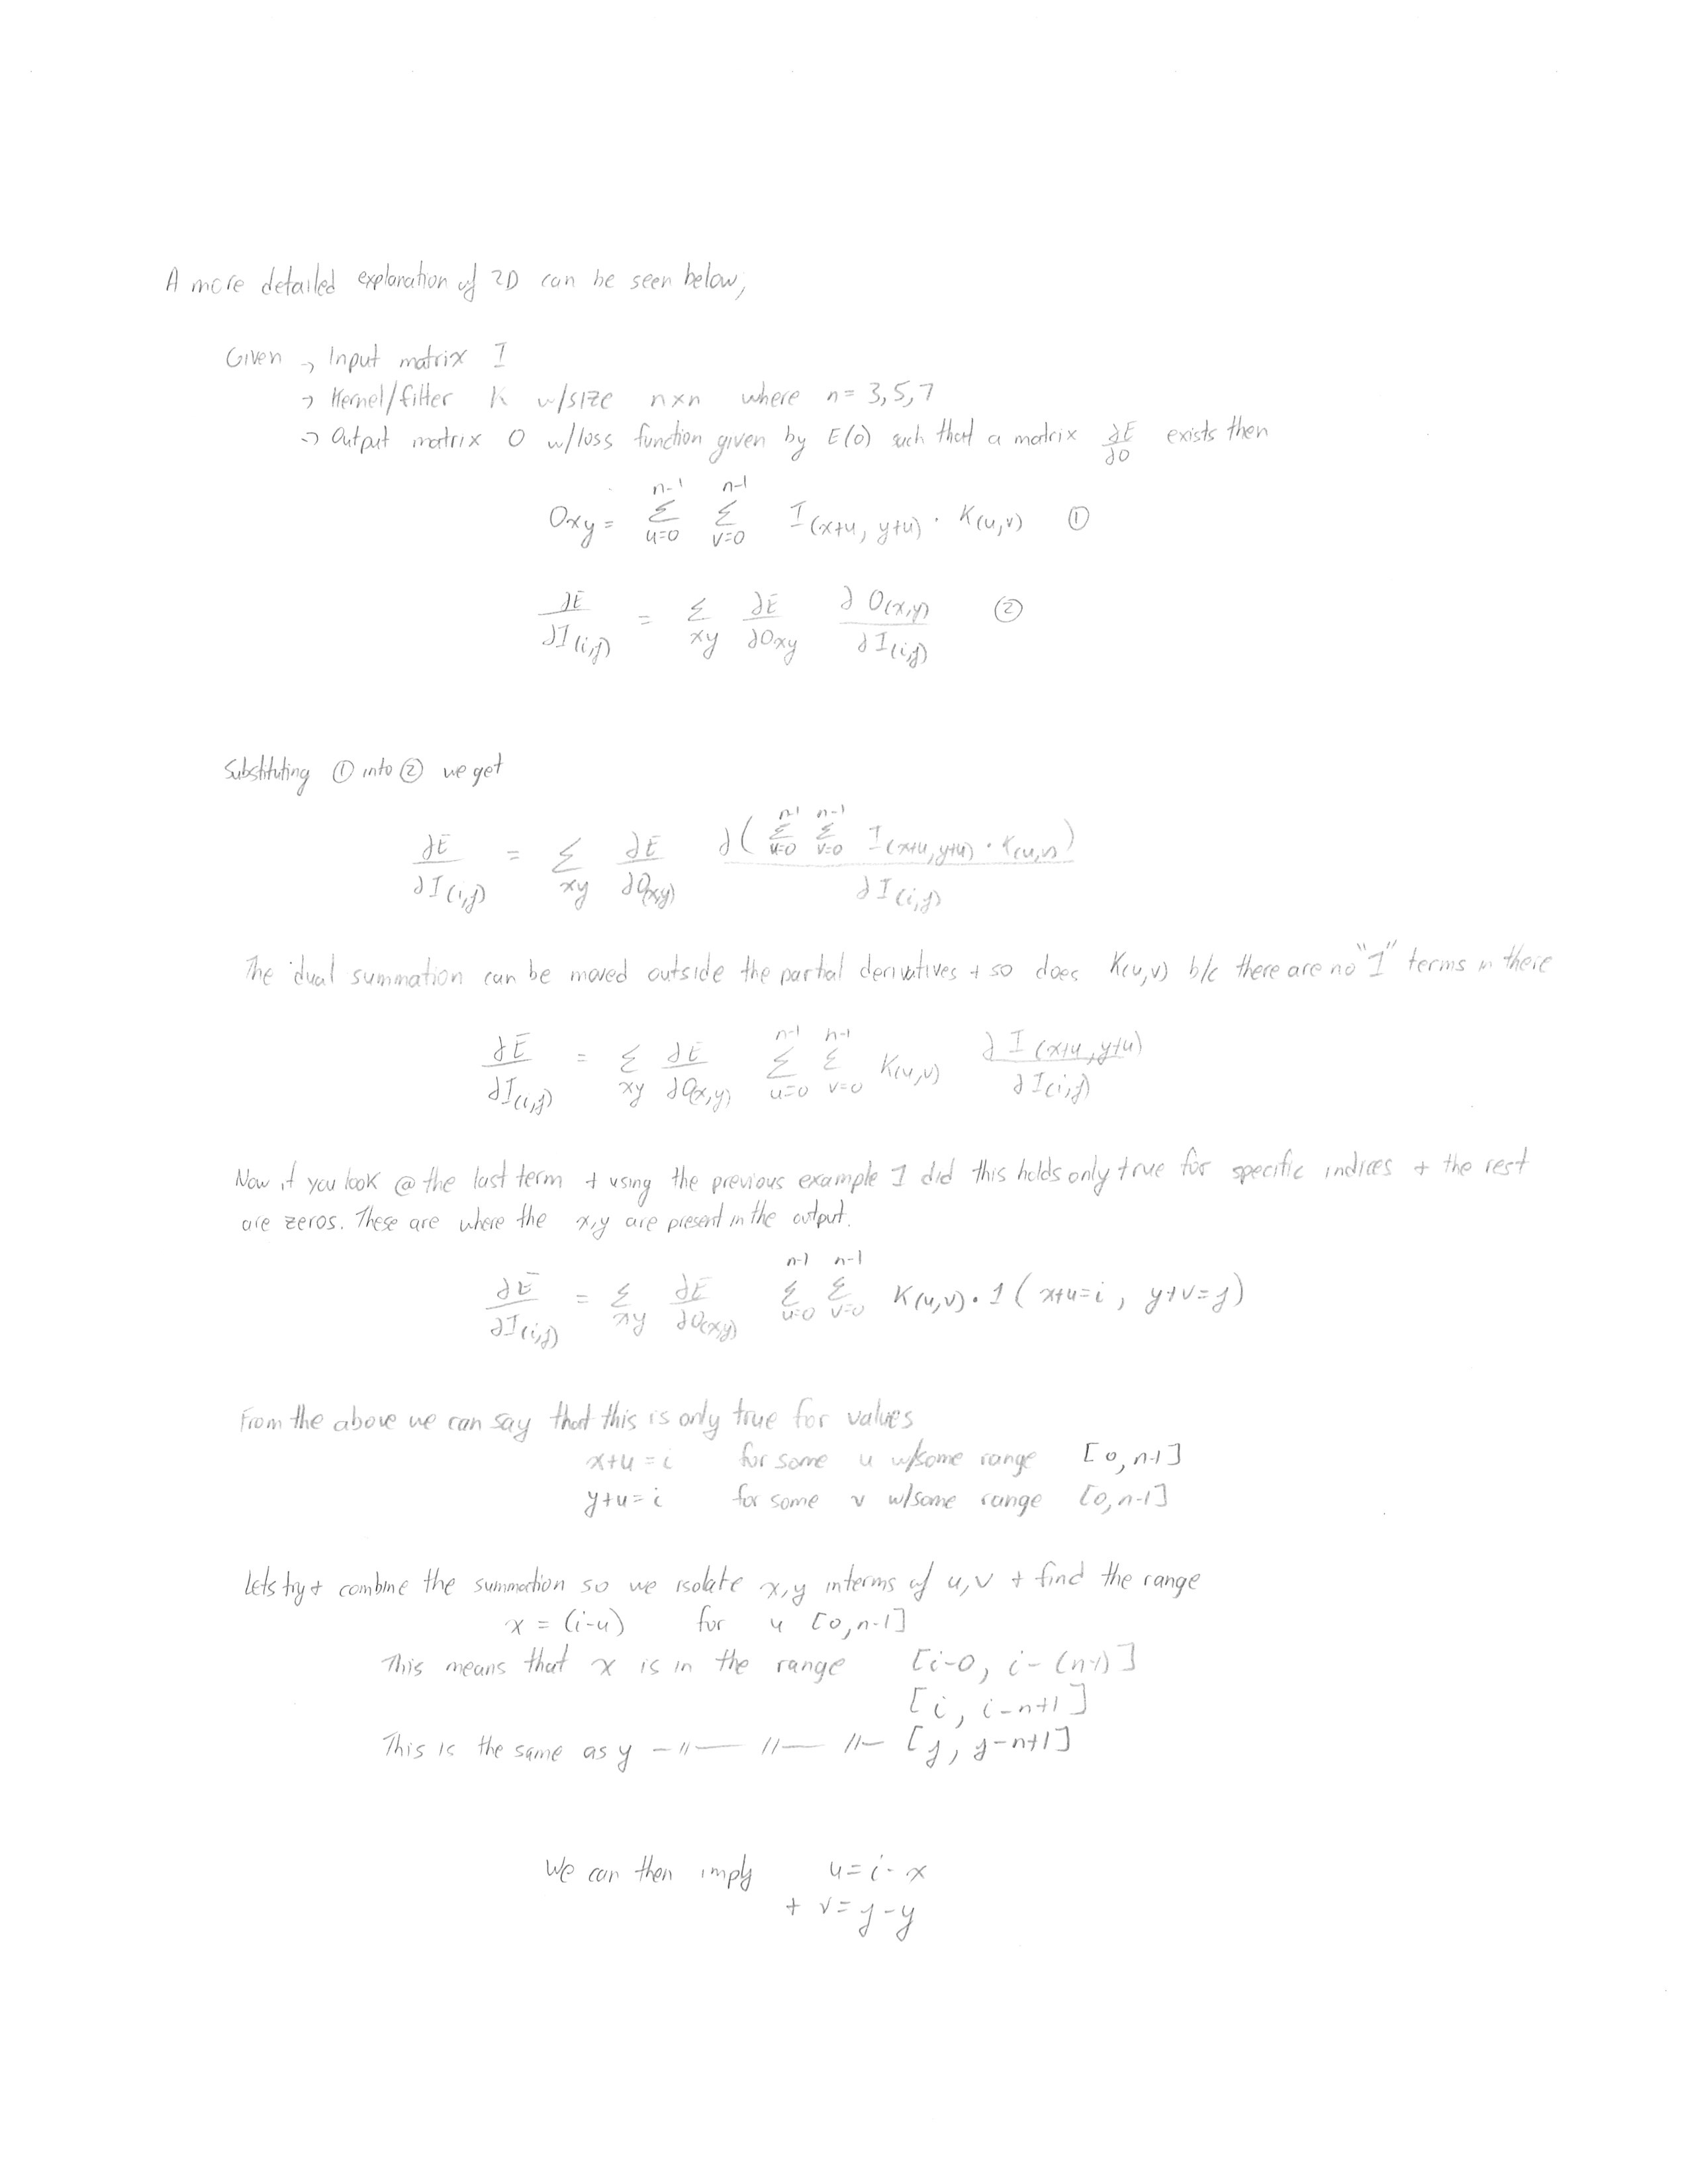 A more detailed explanation of 2D can be seen below,
Given → Input matrix I
→ Kernel/filter K w/size n×n where n= 3,5,7
→ Output matrix O w/loss function given by E(O) such that a matrix ∂E/∂O exists then
Oxy = Σ_{u=0}^{n-1} Σ_{v=0}^{n-1} I(x+u, y+u) · K(u,v) ①
∂E/∂I(i,j) = Σ_{xy} ∂E/∂Oxy ∂O(x,y)/∂I(i,j) ②
Substituting ① into ② we get
∂E/∂I(i,j) = Σ_{xy} ∂E/∂O(x,y) ∂( Σ_{u=0}^{n-1} Σ_{v=0}^{n-1} I(x+u, y+u) · K(u,v) )/∂I(i,j)
The dual summation can be moved outside the partial derivatives + so does K(u,v) b/c there are no "I" terms in there
∂E/∂I(i,j) = Σ_{xy} ∂E/∂O(x,y) Σ_{u=0}^{n-1} Σ_{v=0}^{n-1} K(u,v) ∂I(x+u, y+u)/∂I(i,j)
Now if you look @ the last term + using the previous example I did this holds only true for specific indices + the rest
are zeros. These are where the x,y are present in the output.
∂E/∂I(i,j) = Σ_{xy} ∂E/∂O(x,y) Σ_{u=0}^{n-1} Σ_{v=0}^{n-1} K(u,v) · 1( x+u=i , y+v=j )
From the above we can say that this is only true for values
x+u = i for some u w/some range [0, n-1]
y+u = i for some v w/some range [0, n-1]
Lets try + combine the summation so we isolate x,y interms of u,v + find the range
x = (i-u) for u [0, n-1]
This means that x is in the range [i-0, i-(n-1)]
[i, i-n+1]
This is the same as y —〃— 〃— 〃— [j, j-n+1]
We can then imply u = i-x
+ v = j-y